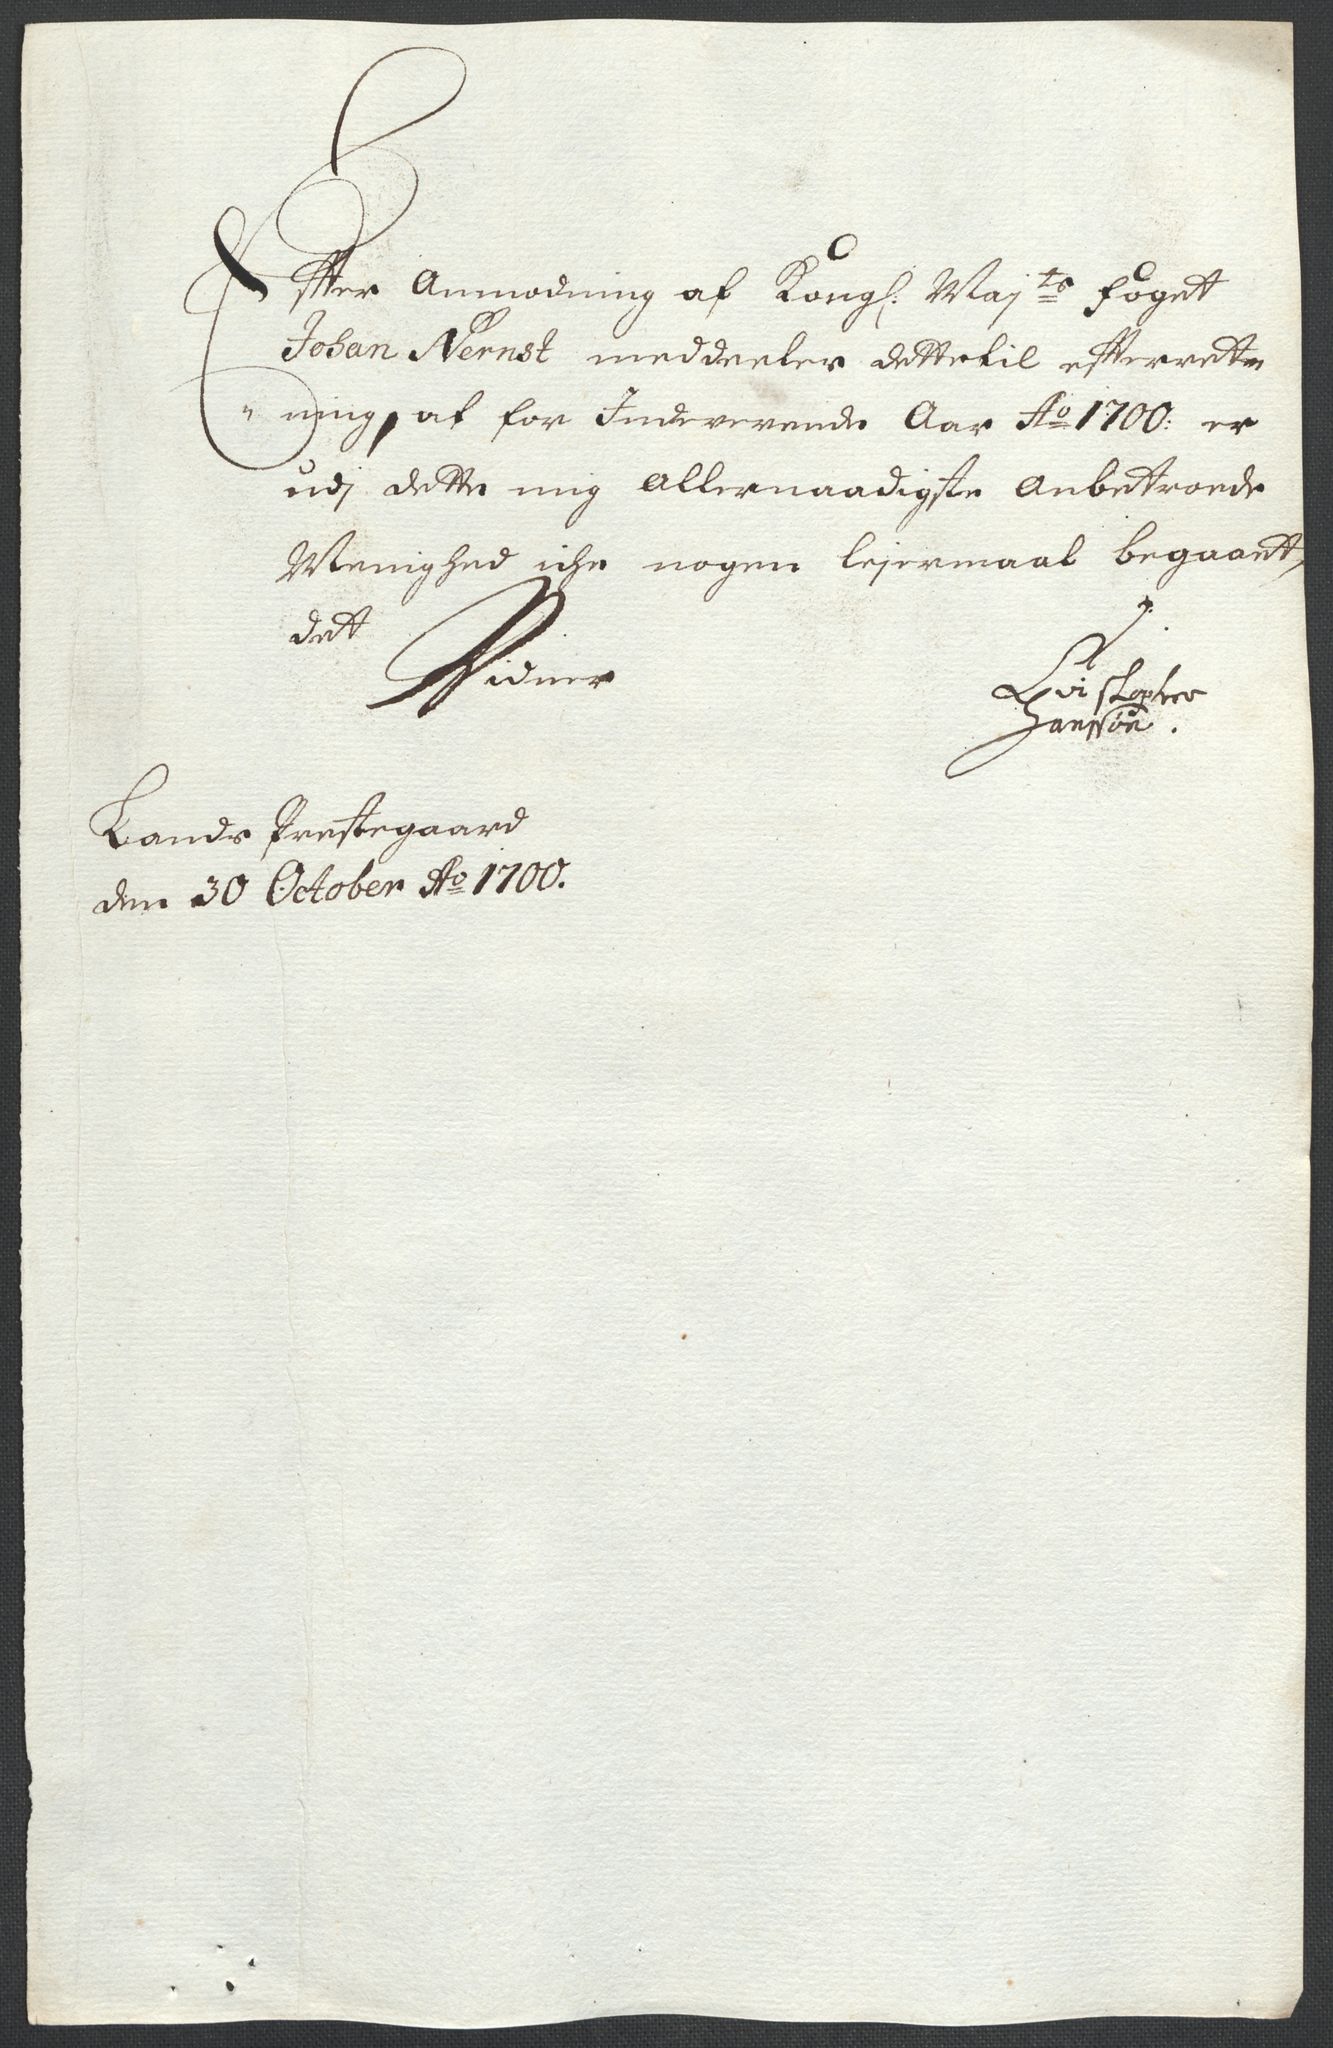 Effter Anmodning af Kongl: Maj:ts foget
Johan Nernst meddeeler dette til efterrett-
ning, at for Indeverende Aar Ao 1700: er
udj dette mig Allernaadigste Anbetroede
Menighed iche nogen lejermaal begaaet,
det
Vidner
Christopher
Hanssøn.
Lands Prestegaard
den 30 October Ao 1700.